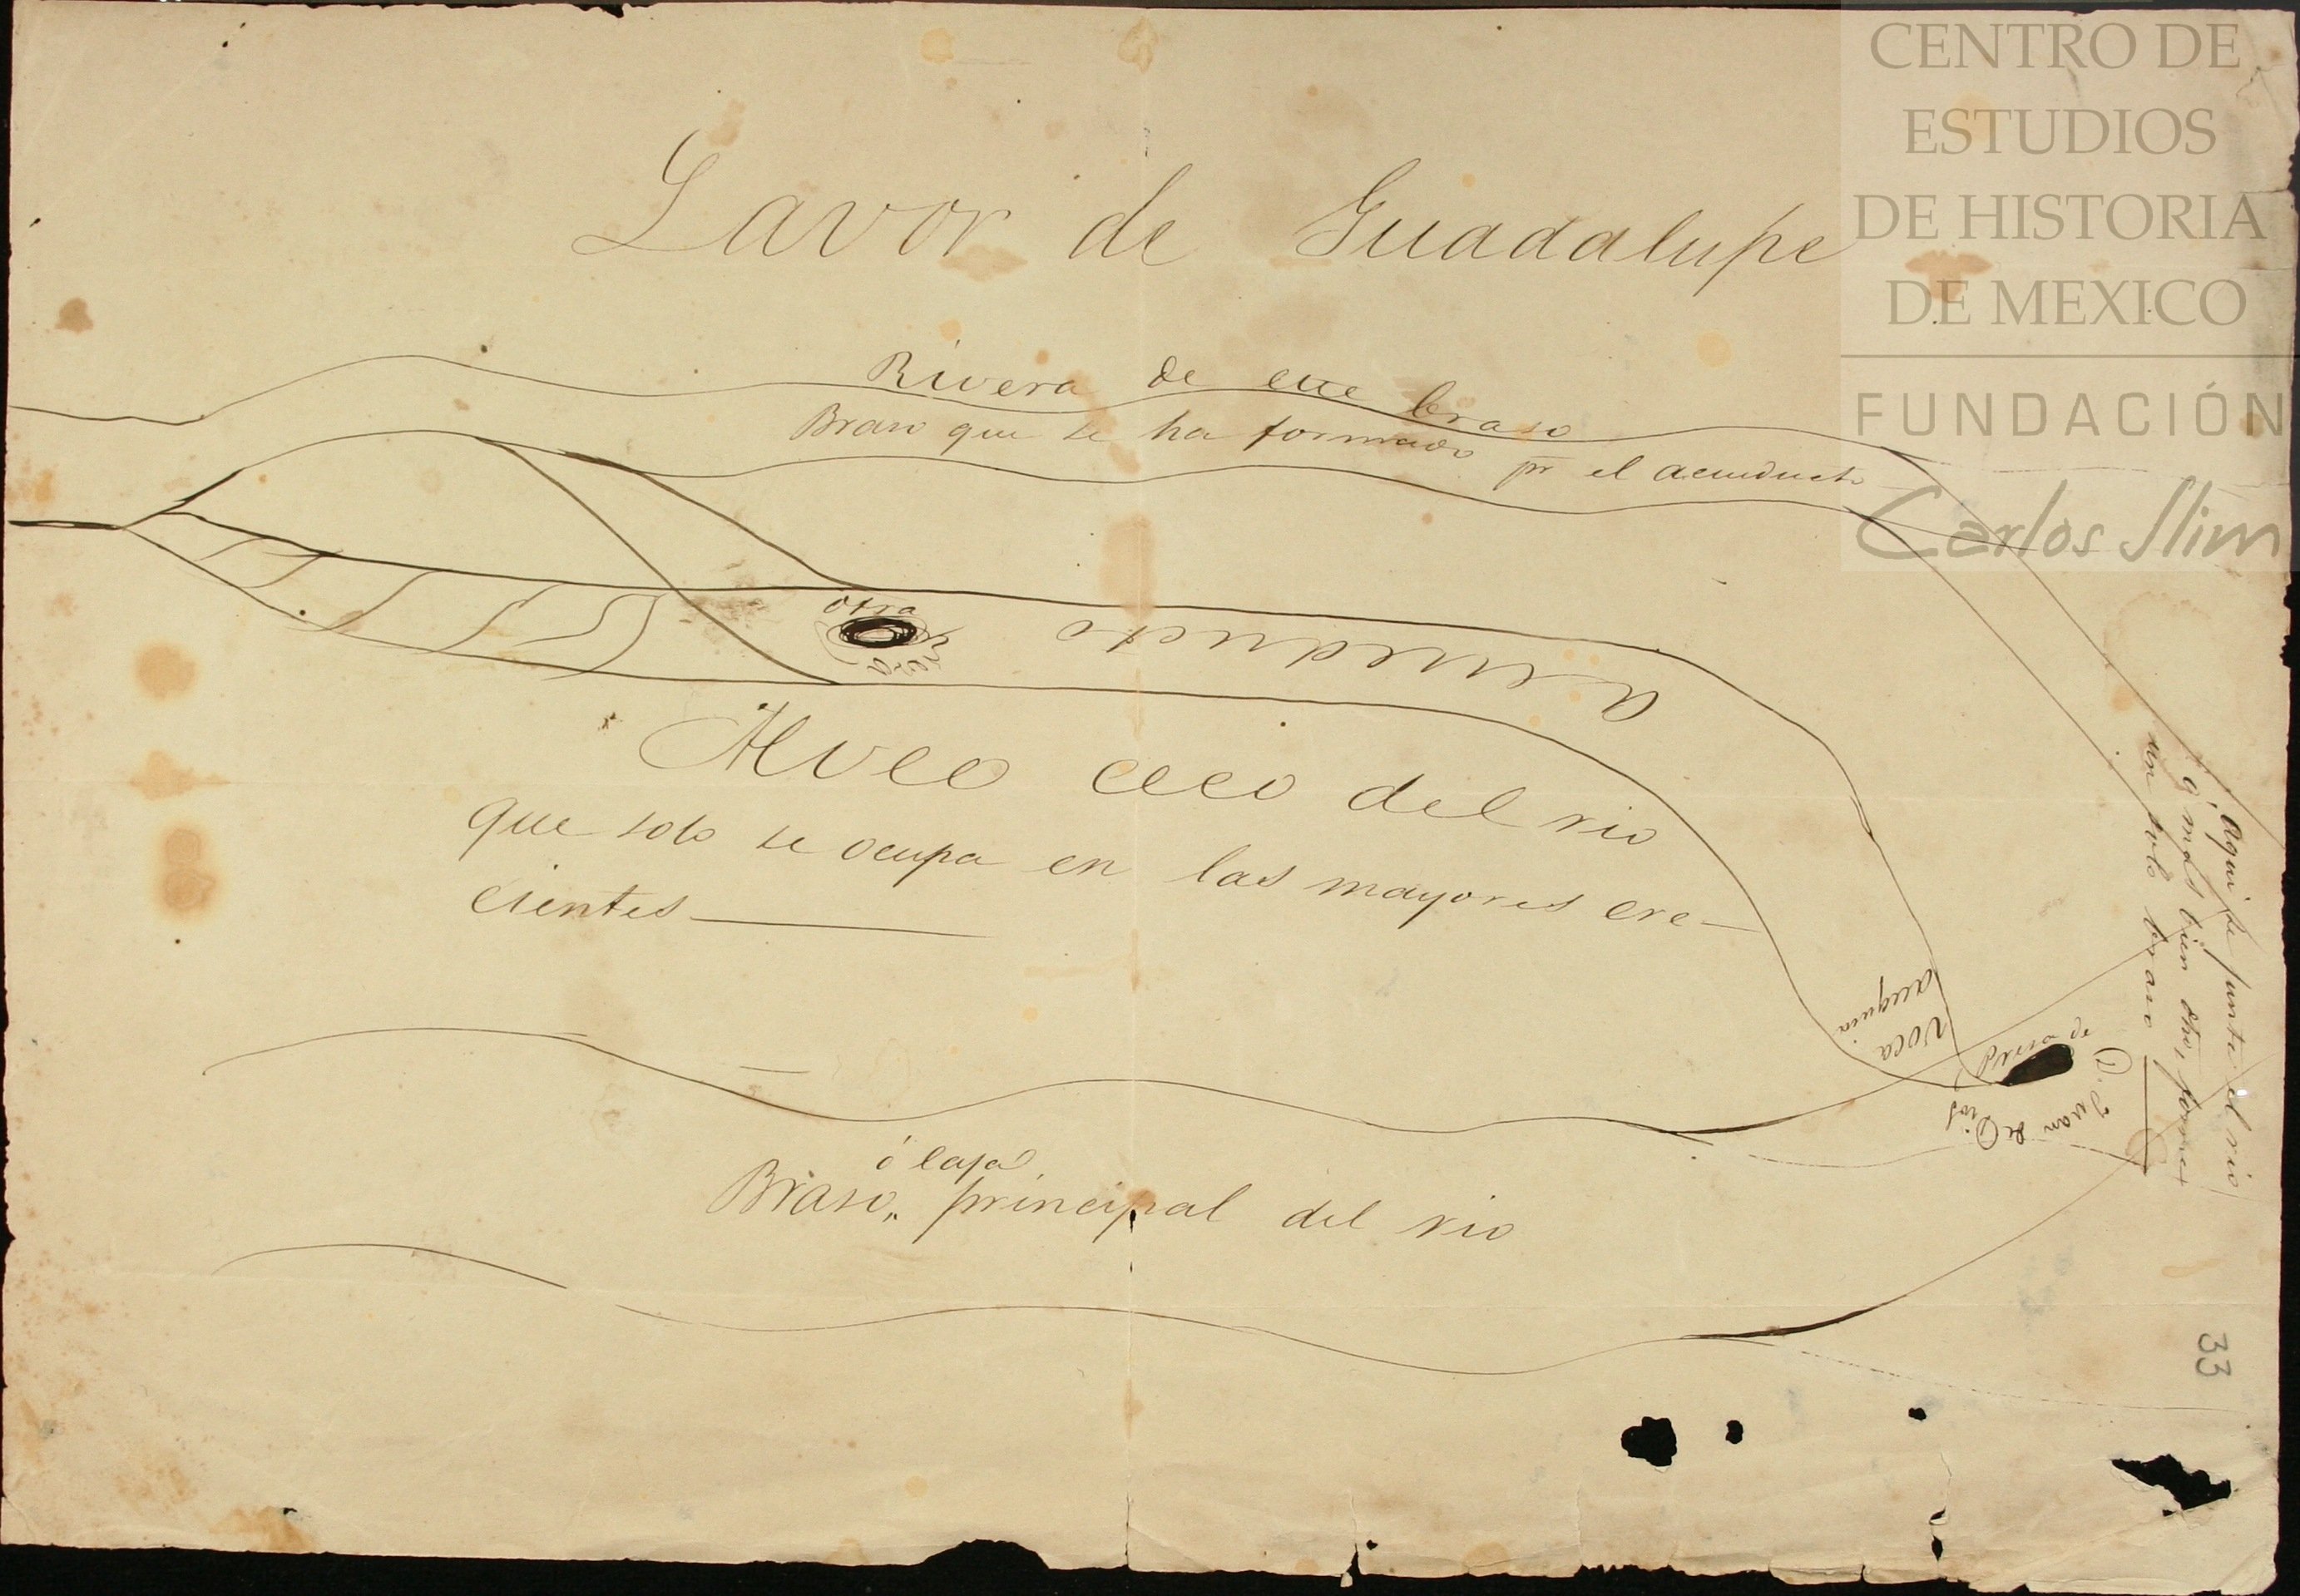 CENTRO DE
ESTUDIOS
DE HISTORIA
DE MEXICO
FUNDACIÓN
Carlos Slim
Lavor de Guadalupe
Rivera de este braso
Braso que se ha formado pr el acueducto
otra
presa
acueducto
Alveo ceco del rio
que solo se ocupa en las mayores cre-
cientes
voca
acequia
Presa
de
D. Juan de Dios
Aqui se junta el rio
ó mas bien dho, forma
un solo braso
ó caja
Braso,, principal del rio
33